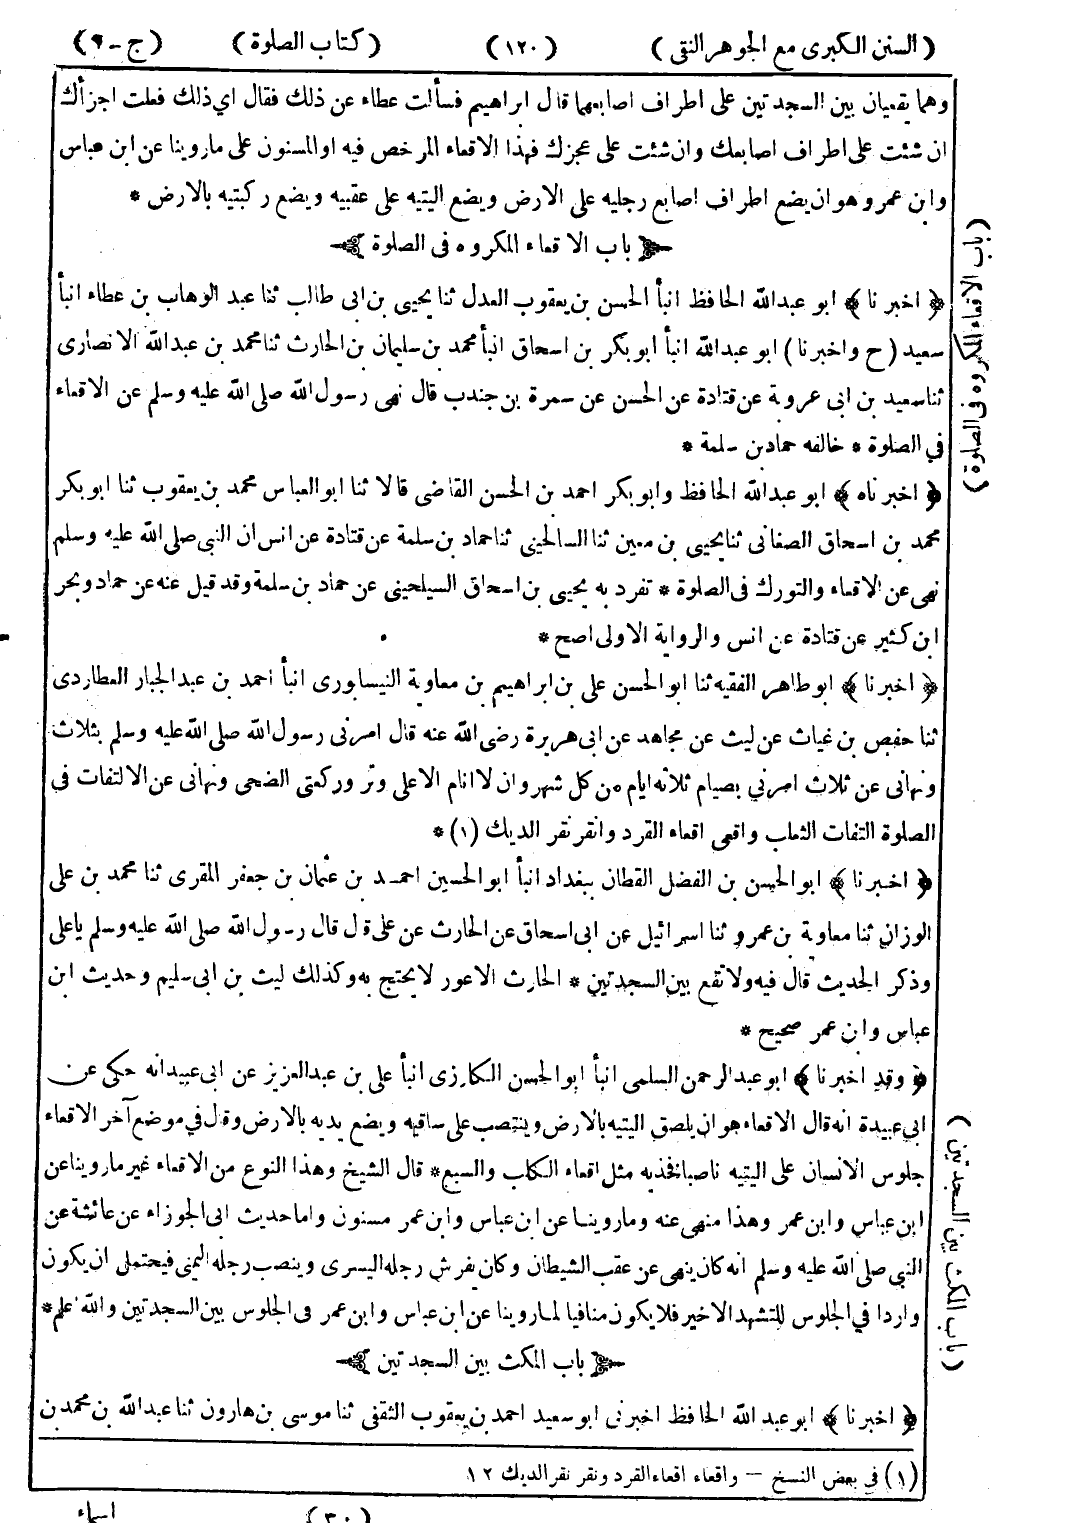 (السنن الكبرى مع الجوهر النقى) (١٢٠) (كتاب الصلوة) (ج-٢)
وهما يقعيان بين السجدتين على اطراف اصابعهما قال ابراهيم فسألت عطاء عن ذلك فقال اي ذلك فعلت اجزأك
ان شئت على اطراف اصابعك وان شئت على عجزك فهذا الاقعاء المرخص فيه او المسنون على ماروينا عن ابن عباس
وابن عمر وهو ان يضع اطراف اصابع رجليه على الارض ويضع اليتيه على عقبيه ويضع ركبتيه بالارض *
باب الاقعاء المكروه فى الصلوة
﴿ اخبرنا ﴾ ابو عبدالله الحافظ انبأ الحسن بن يعقوب العدل ثنا يحيى بن ابى طالب ثنا عبد الوهاب بن عطاء انبأ
سعيد (ح واخبرنا) ابو عبدالله انبأ ابوبكر بن اسحاق انبأ محمد بن سليمان بن الحارث ثنا محمد بن عبدالله الانصارى
ثنا سعيد بن ابى عروبة عن قتادة عن الحسن عن سمرة بن جندب قال نهى رسول الله صلى الله عليه وسلم عن الاقعاء
في الصلوة * خالفه حماد بن سلمة *
﴿ اخبرناه ﴾ ابو عبدالله الحافظ وابوبكر احمد بن الحسن القاضى قالا ثنا ابو العباس محمد بن يعقوب ثنا ابوبكر
محمد بن اسحاق الصغانى ثنا يحيى بن معين ثنا السالحينى ثنا حماد بن سلمة عن قتادة عن انس ان النبى صلى الله عليه وسلم
نهى عن الاقعاء والتورك فى الصلوة * تفرد به يحيى بن اسحاق السيلحينى عن حماد بن سلمة وقد قيل عنه عن حماد وبحر
ابن كثير عن قتادة عن انس والرواية الاولى اصح *
﴿ اخبرنا ﴾ ابو طاهر الفقيه ثنا ابو الحسن على بن ابراهيم بن معاوية النيسابورى انبأ احمد بن عبدالجبار العطاردى
ثنا حفص بن غياث عن ليث عن مجاهد عن ابى هريرة رضى الله عنه قال امرنى رسول الله صلى الله عليه وسلم بثلاث
ونهانى عن ثلاث امرني بصيام ثلاثه ايام من كل شهر وان لا انام الا على وتر وركعتى الضحى ونهانى عن الالتفات في
الصلوة التفات الثعلب واقعى اقعاء القرد وانقر نقر الديك (١) *
﴿ اخبرنا ﴾ ابو الحسن بن الفضل القطان ببغداد انبأ ابو الحسين احمد بن عثمان بن جعفر المقرى ثنا محمد بن على
الوزان ثنا معاوية بن عمرو ثنا اسرائيل عن ابى اسحاق عن الحارث عن على قال قال رسول الله صلى الله عليه وسلم ياعلى
وذكر الحديث قال فيه ولا تقع بين السجدتين * الحارث الاعور لا يحتج به وكذلك ليث بن ابى سليم وحديث ابن
عباس وابن عمر صحيح *
﴿ وقد اخبرنا ﴾ ابو عبد الرحمن السلمى انبأ ابو الحسن الكارزى انبأ على بن عبدالعزيز عن ابى عبيد انه حكى عن
ابي عبيدة انه قال الاقعاء هو ان يلصق اليتيه بالارض وينتصب على ساقيه ويضع يديه بالارض وقال في موضع آخر الاقعاء
جلوس الانسان على اليتيه ناصبا فخذيه مثل اقعاء الكلب والسبع * قال الشيخ وهذا النوع من الاقعاء غير ماروينا عن
ابن عباس وابن عمر وهذا منهى عنه وماروينا عن ابن عباس وابن عمر مسنون واما حديث ابى الجوزاء عن عائشة عن
النبى صلى الله عليه وسلم انه كان ينهى عن عقب الشيطان وكان يفرش رجله اليسرى وينصب رجله اليمنى فيحتمل ان يكون
واردا في الجلوس للتشهد الاخير فلا يكون منافيا لماروينا عن ابن عباس وابن عمر فى الجلوس بين السجدتين والله اعلم *
باب المكث بين السجدتين
﴿ اخبرنا ﴾ ابو عبد الله الحافظ اخبرنى ابو سعيد احمد بن يعقوب الثقفى ثنا موسى بن هارون ثنا عبدالله بن محمد بن
(١) في بعض النسخ — واقعاء اقعاء القرد ونقر نقر الديك ١٢
(٣٠) اسماء
(باب الاقعاء المكروه فى الصلوة)
(باب المكث بين السجدتين)